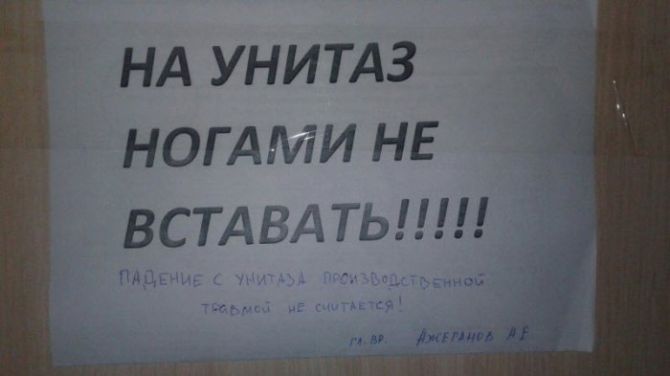 НА УНИТАЗ
НОГАМИ НЕ
ВСТАВАТЬ!!!!!
ПАДЕНИЕ С УНИТАЗА ПРОИЗВОДСТВЕННОЙ
ТРАВМОЙ НЕ СЧИТАЕТСЯ!
ГЛ. ВР. АЖЕГАНОВ А.Е